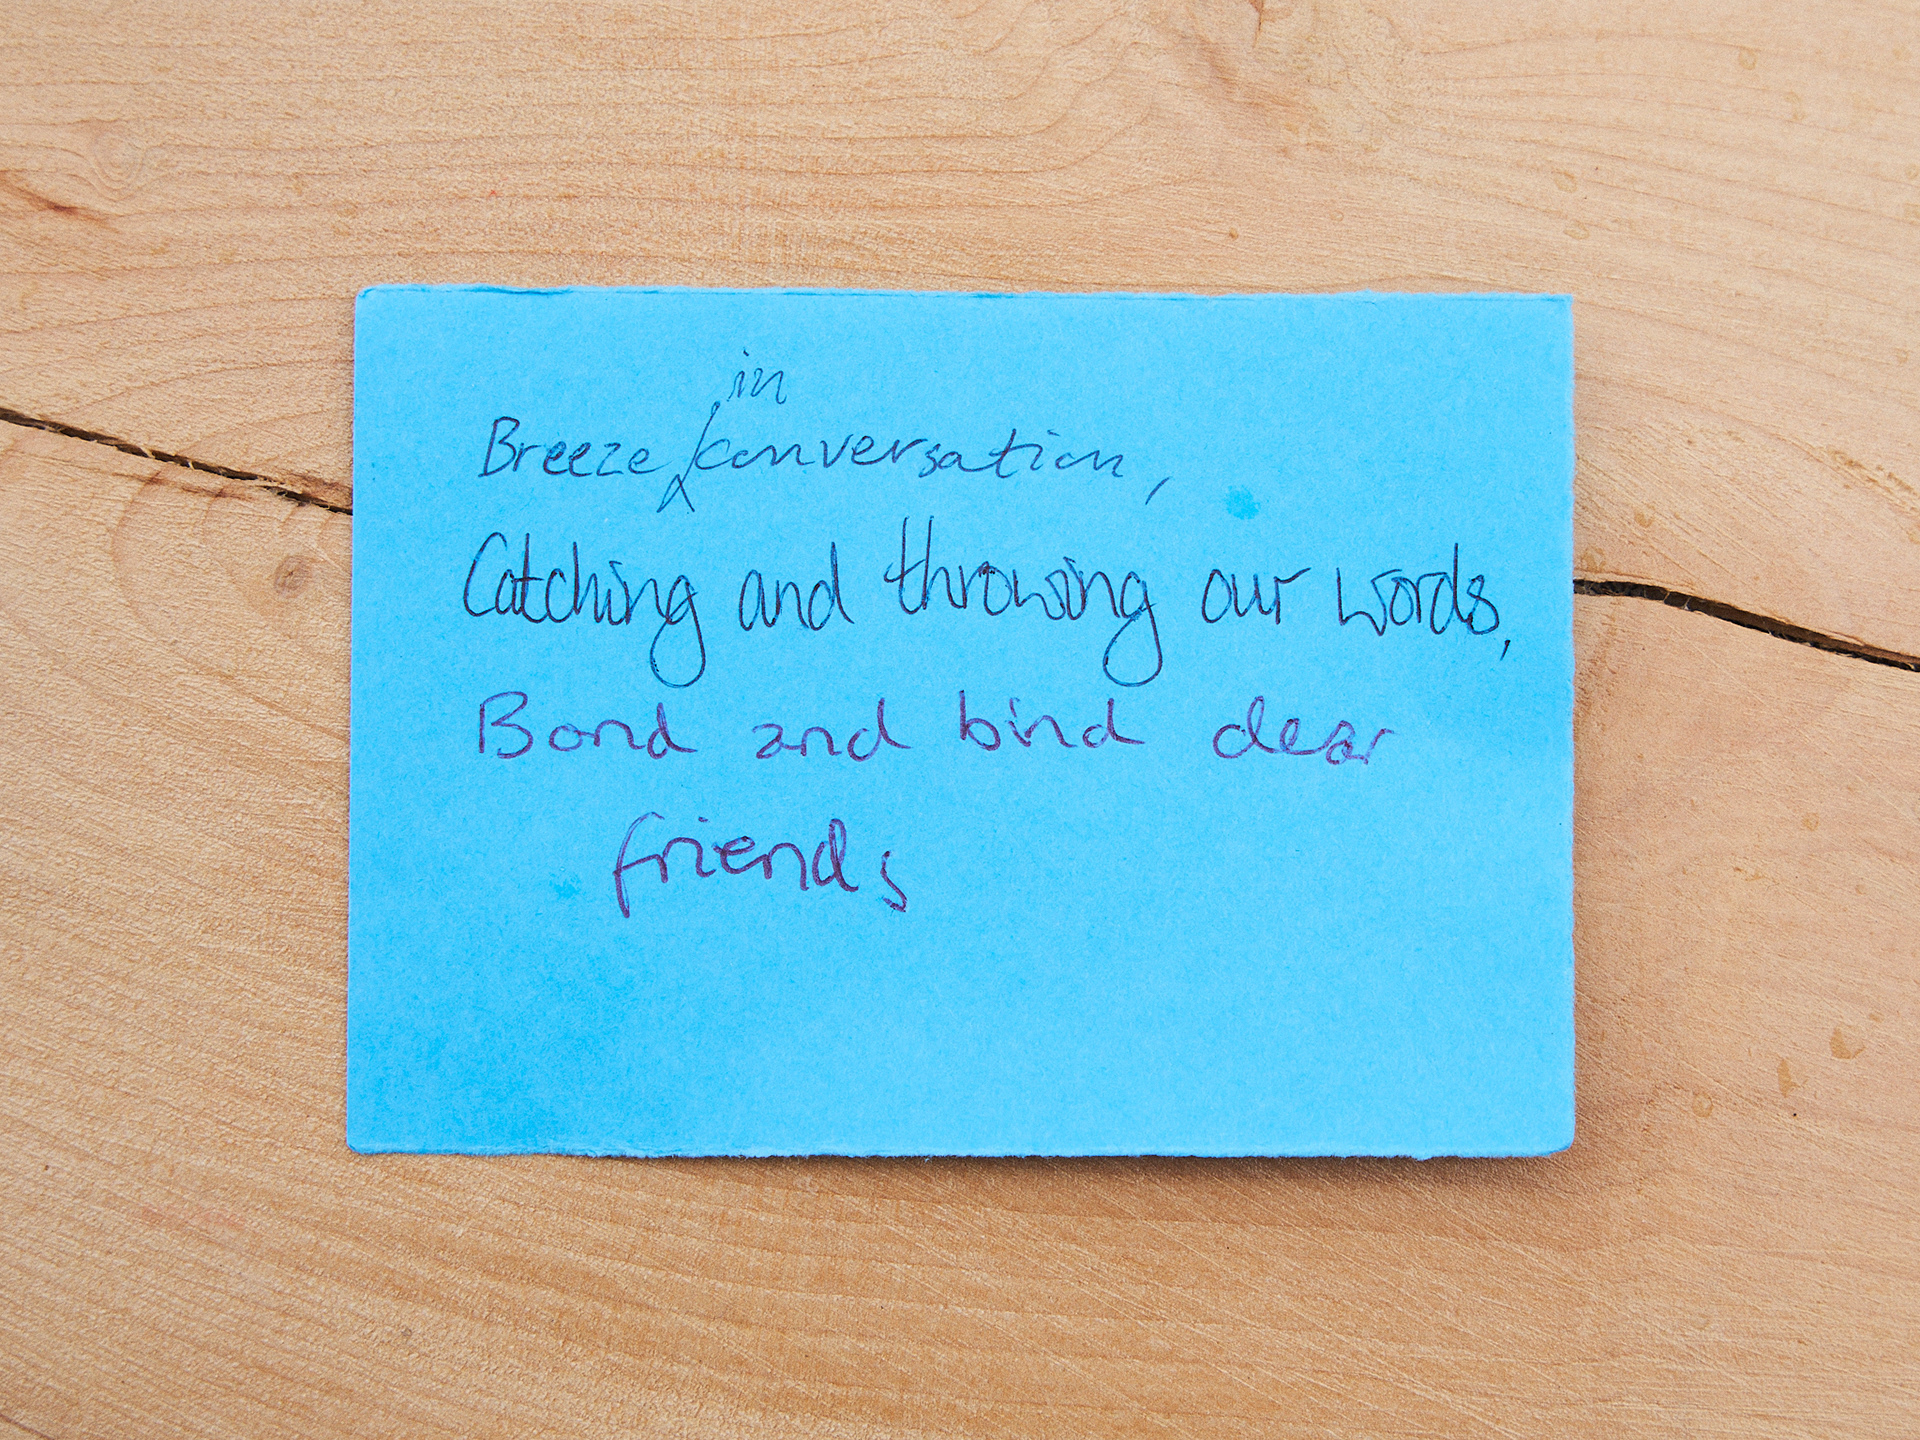 Breeze in conversation,
Catching and throwing our words,
Bond and bind dear
friends